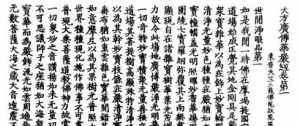 大方廣佛華嚴經卷第一
東晉天竺三藏佛馱跋陀羅
世間淨眼品第一
如是我聞一時佛在摩竭提國寂滅
道場始成正覺其地金剛具足嚴淨
衆寶雜華以為莊飾上妙寶輪圓滿
清淨無量妙色種種莊嚴猶如大海
寶幢幡蓋光明照耀妙香華鬘周匝
圍遶七寶羅網彌覆其上雨無盡寶
顯現自在諸雜寶樹華葉光茂佛神
力故令此場地廣博嚴淨光明普照
一切奇特妙寶積聚無量善根莊嚴
道場其菩提樹高顯殊特清淨琉璃
以為其幹妙寶枝條莊嚴清淨寶葉
垂布猶如重雲雜色寶華間錯其間
如意摩尼以為其果樹光普照十方
世界種種現化施作佛事不可盡極
普現大乘菩薩道教佛神力故常出
一切衆妙之音讚揚如來無量功德
不可思議師子之座猶如大海衆妙
寶華而為嚴飾流光如雲周遍普照
無數菩薩大海之藏大音遠震不可